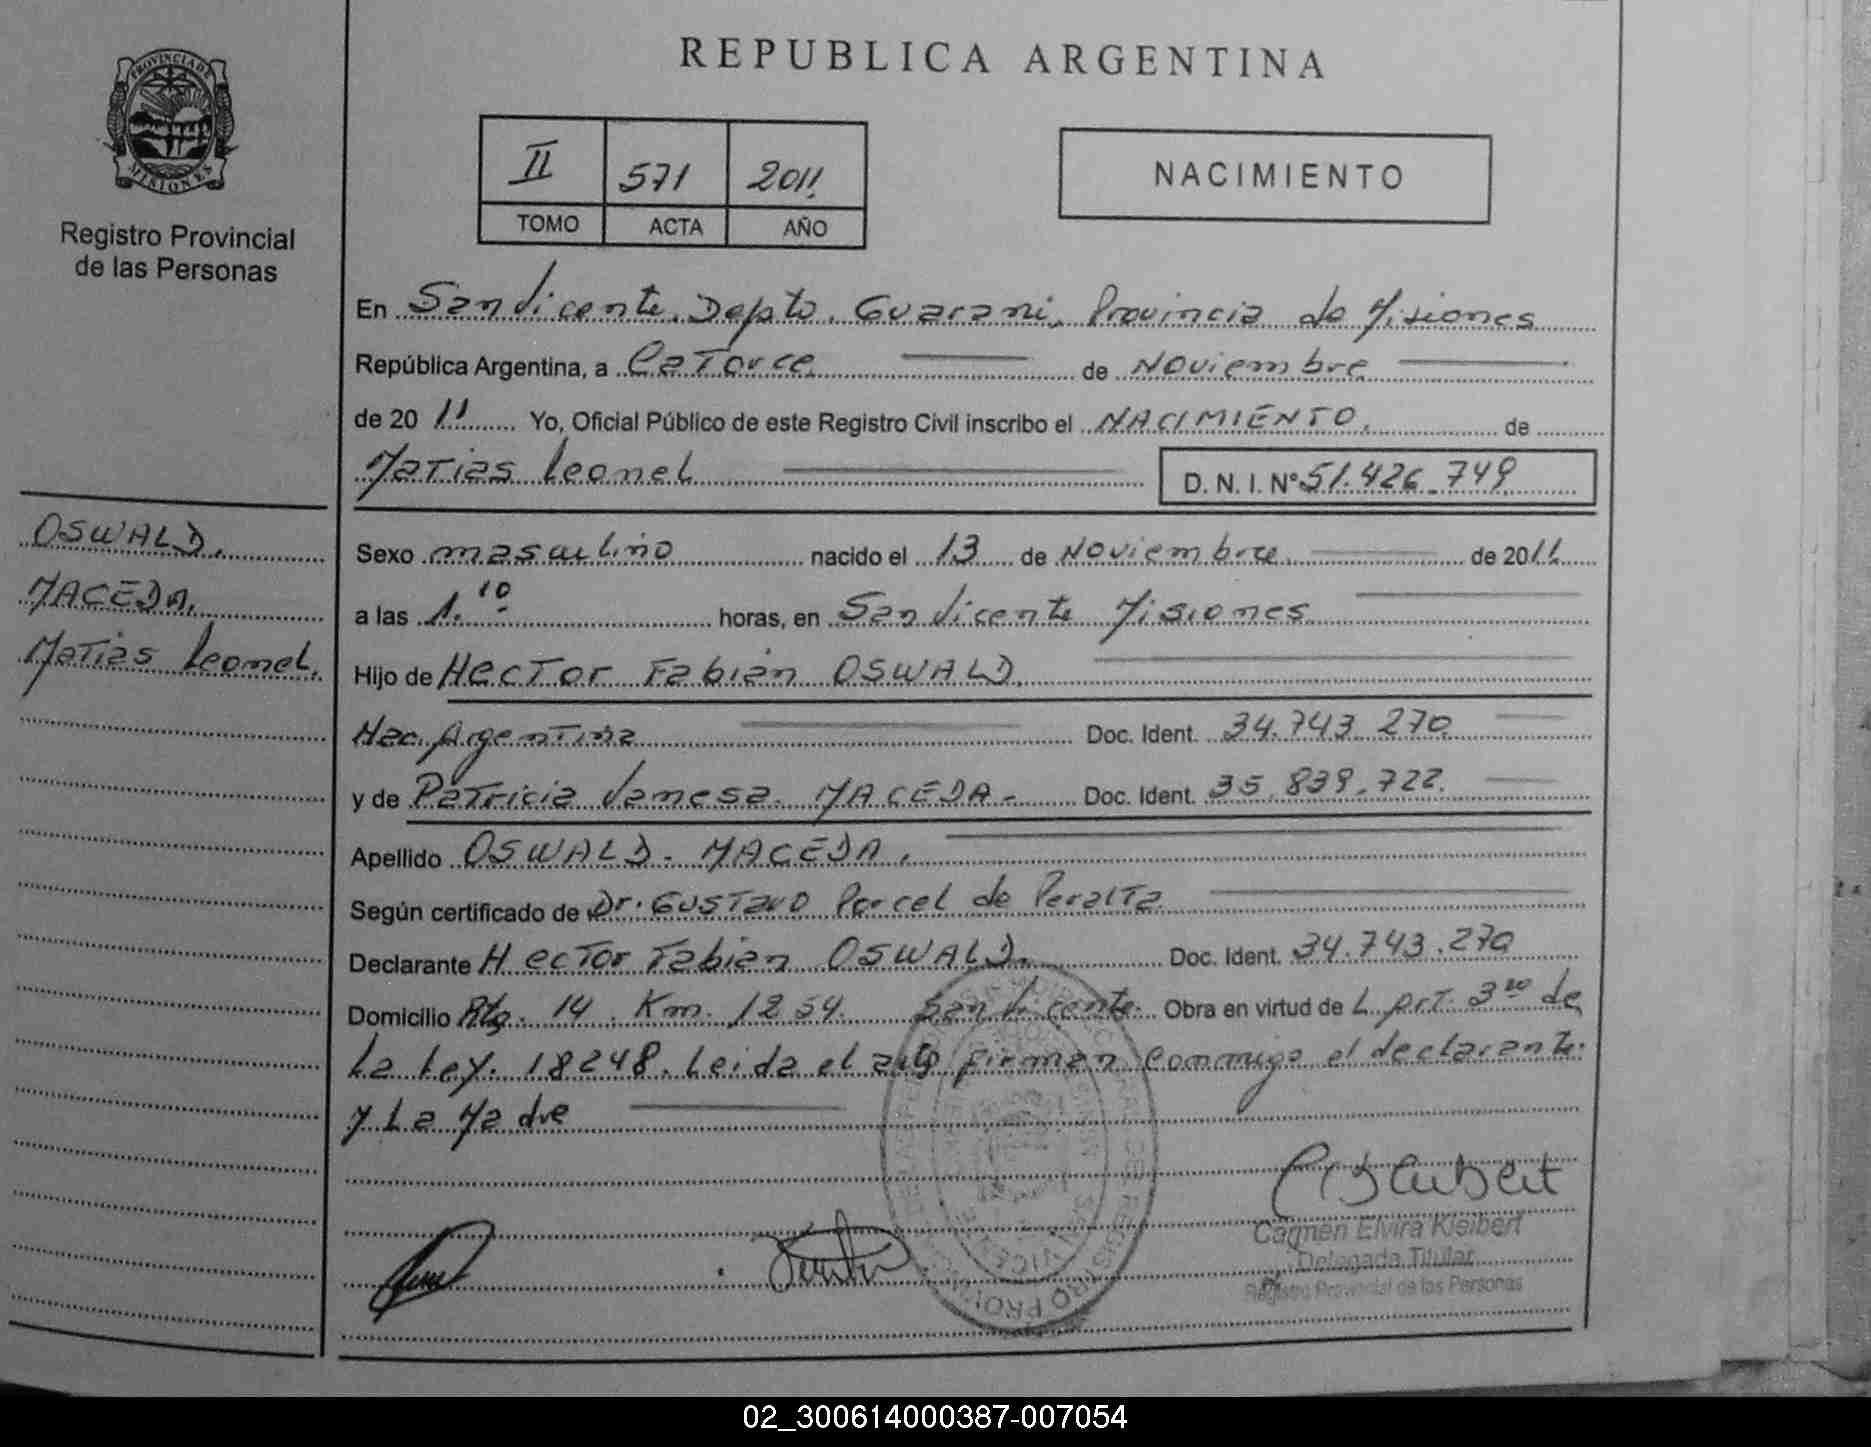 PROVINCIA DE
MISIONES
Registro Provincial
de las Personas
REPUBLICA ARGENTINA
II 571 2011
TOMO ACTA AÑO
NACIMIENTO
En San Vicente. Depto. Guarani, Provincia de Misiones
República Argentina, a Catorce de Noviembre
de 20 11 Yo, Oficial Público de este Registro Civil inscribo el NACIMIENTO. de
Matias Leonel D. N. I. N° 51.426.749
OSWALD.
MACEDA.
Matias Leonel.
Sexo masculino nacido el 13 de Noviembre de 2011
a las 1.10 horas, en San Vicente Misiones
Hijo de Hector Fabian OSWALD.
Nac. Argentina Doc. Ident. 34.743.270
y de Patricia Vanesa. MACEDA- Doc. Ident. 35.839.722.
Apellido OSWALD- MACEDA.
Según certificado de Dr. Gustavo Porcel de Peralta
Declarante Hector Fabian OSWALD. Doc. Ident. 34.743.270
Domicilio Rta. 14. Km. 1254. San Vicente. Obra en virtud de L. Art. 3ro de
La Ley. 18248. Leida el acta firman conmigo el declarante.
y La Madre
Carmen Elvira Kleibert
Delegada Titular
Registro Provincial de las Personas
02_300614000387-007054